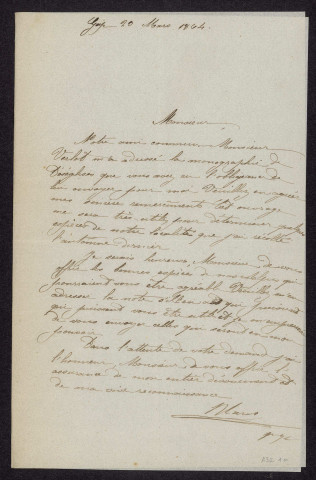 Gap 20 Mars 1864
Monsieur
Notre ami commun, Monsieur
Verlot m'a adressé la monographie de
que vous avez eu l'obligeance de
lui envoyer pour moi Veuillez en agréer
mes sincères remerciements cet ouvrage
me sera très utile pour déterminer quelques
espèces de notre localité que j'ai récolté
l'automne dernier
Je serais heureux Monsieur de vous
offrir les bonnes espèces de nos alpes qui
pourraient vous être agréable Veuillez m'en
adresser la note
qui peuvent vous être utile et je m'empresserai
de vous envoyer celles que seront en mon
pouvoir
Dans l'attente de votre demande, j'ai
l'honneur, Monsieur, de vous offrir l'
assurance de mon entier dévouement et
de ma vive reconnaissance